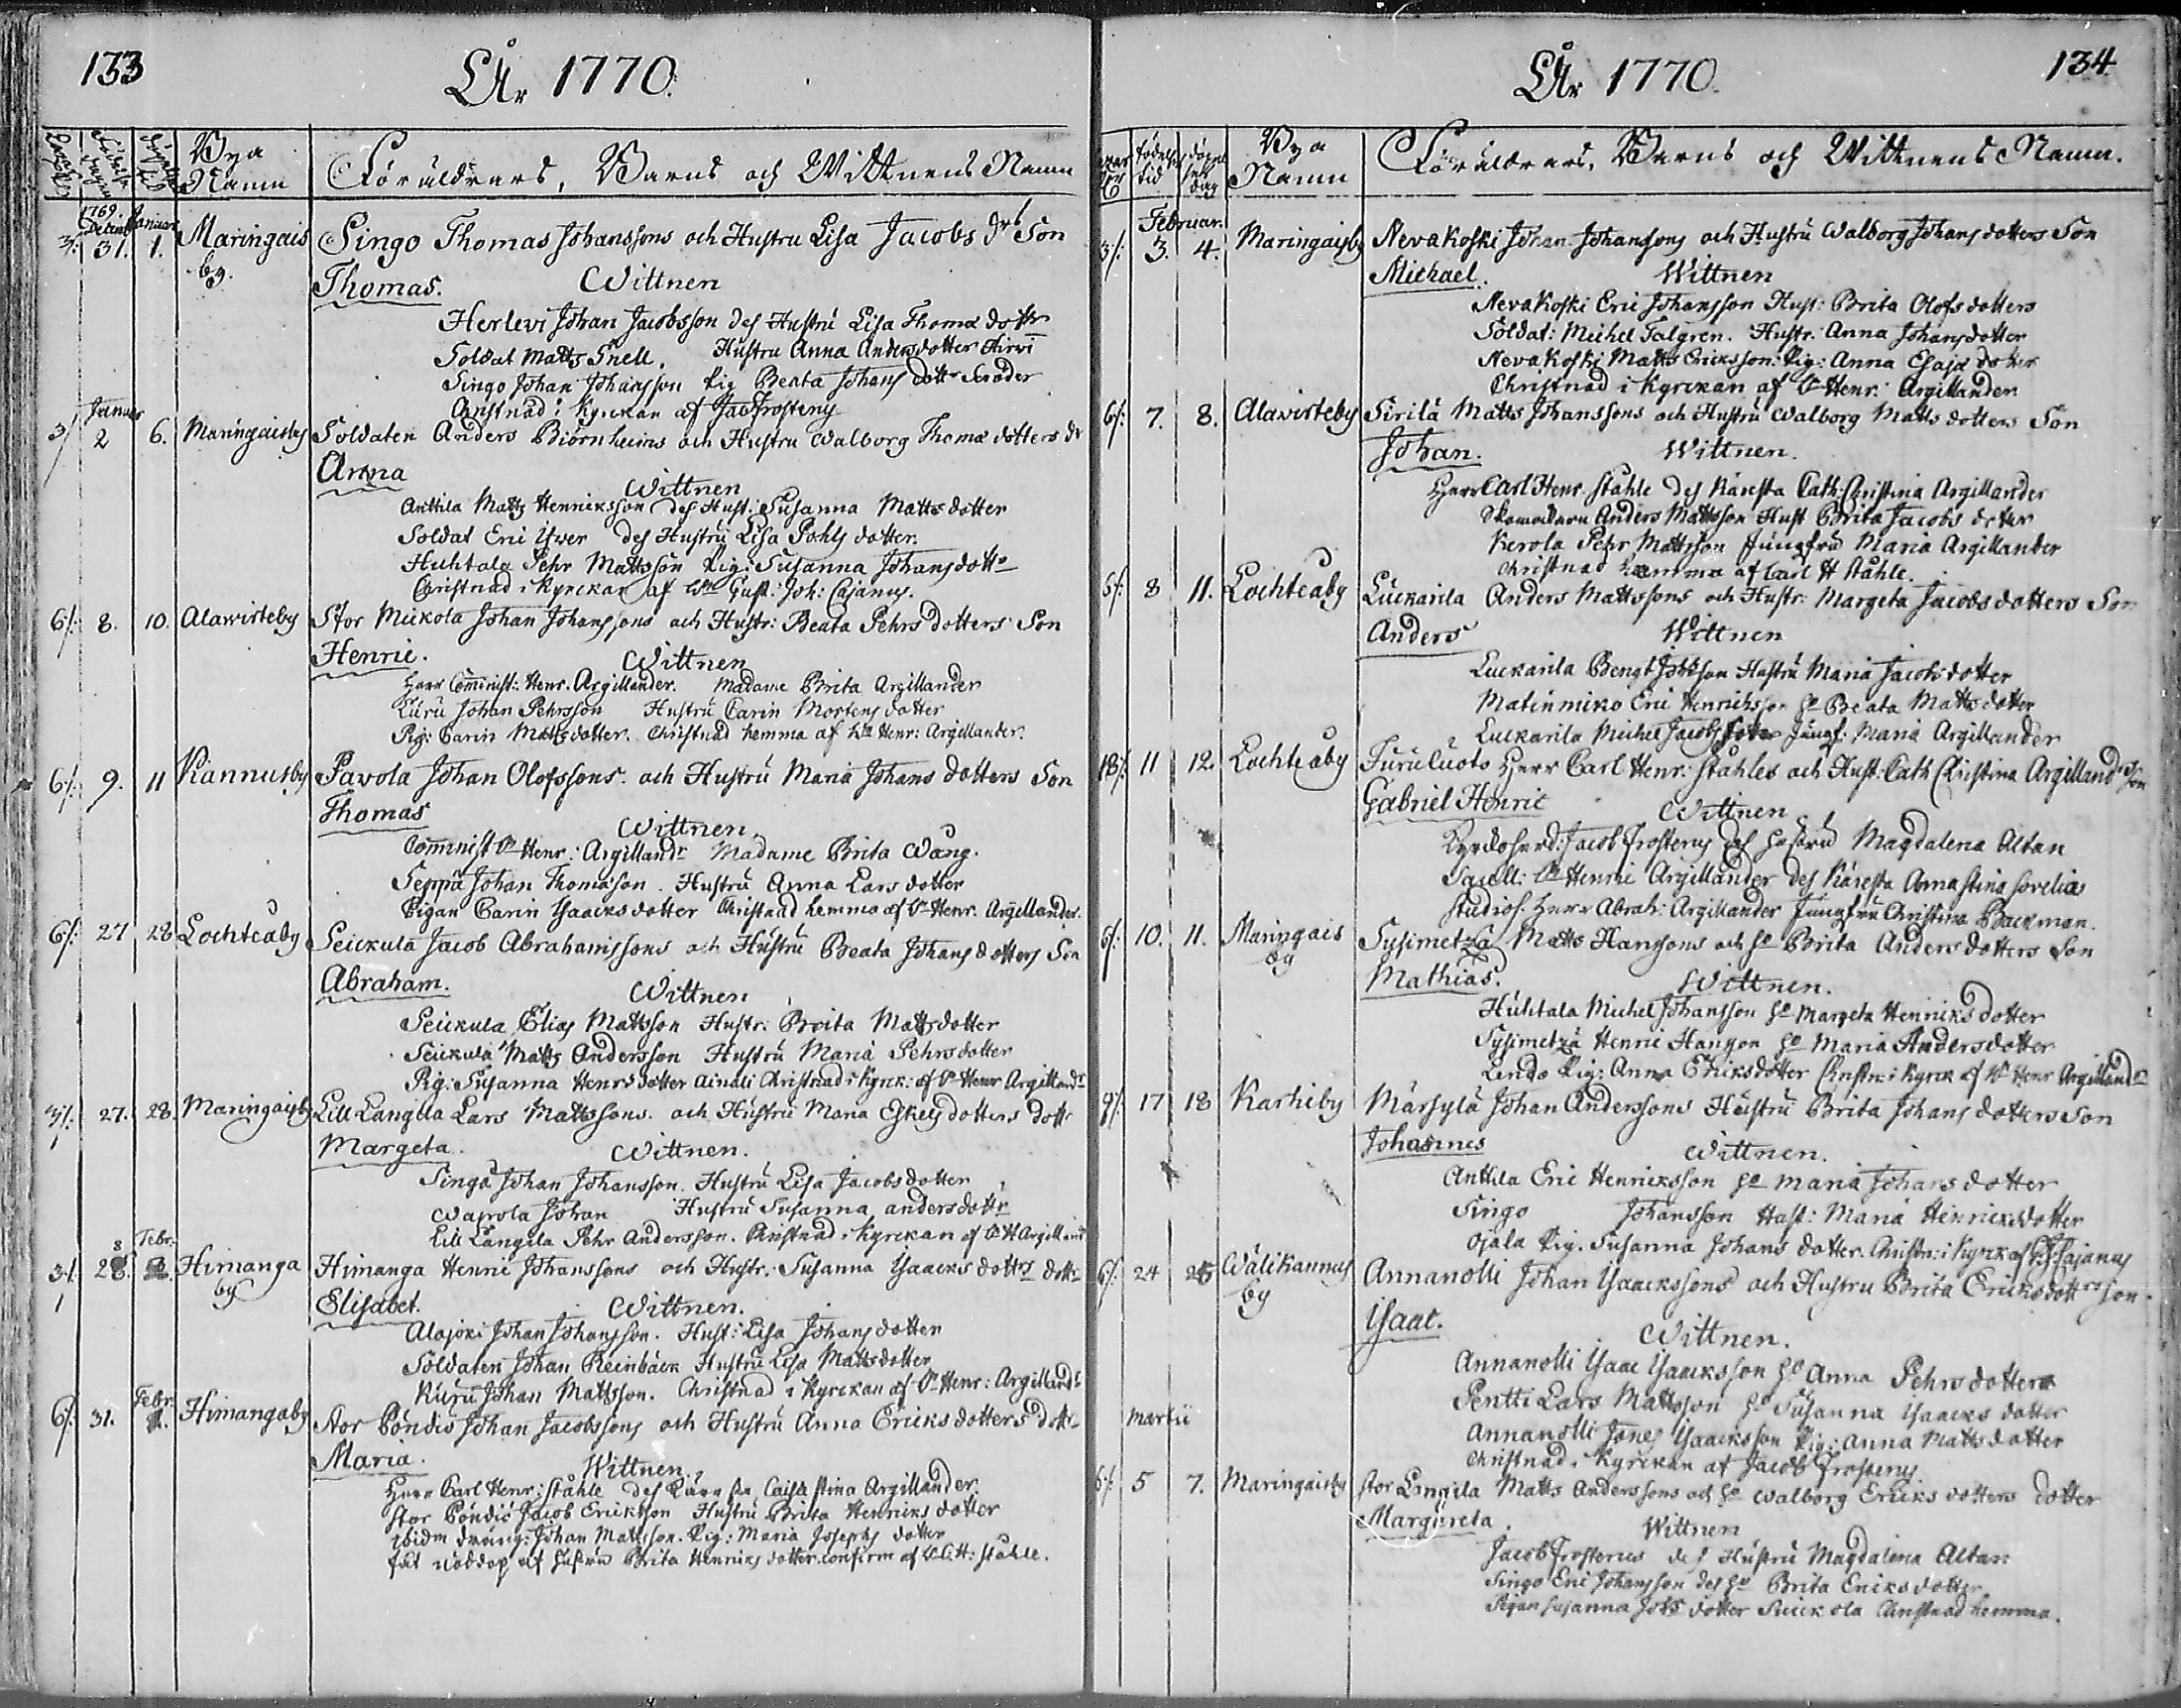 133
År 1770.
Bya Namn
Föräldrars, Barns och Wittnens Namn
1769. Decemb Januar
3/: 31. 1. Maringais Singo Thomas Johanssons och Hustru Lisa Jacobs drs Son
by. Thomas. Wittnen
Herlevi Johan Jacobsson des Hustru Lisa Thomæ dottr
Soldat Matts Snell. Hustru Anna Andersdotter Hirvi
Singo Johan Johansson Pig Beata Johans dottr
Christnad i Kyrckan af Jac Frosterus
Januar
3/ 2 6. Maringaisby Soldaten Anders Biörnheims och Hustru Walborg Thomæ dotters dr
Anna
Wittnen
Anttila Matts Henricksson des Hust: Susanna Matts dotter
Soldat Eric Ifver des Hustru Lisa Pohls dotter.
Huhtala Pehr Mattsson Pig: Susanna Johans dottr
Christnad i Kyrckan af Gust: Joh: Cajanus.
6/: 8. 10. Alawirteby Stor Mickola Johan Johanssons och Hustr: Beata Pehrs dotters Son
Henric.
Wittnen
Herr Cominist: Henr. Argillander. Madame Brita Argillander
Kuru Johan Pehrsson Hustru Carin Mortens dotter
Pig: Carin Matts dotter. Christnad hemma af Hr Henr: Argillander.
6/: 9. 11 Kannusby Pavola Johan Olofssons och Hustru Maria Johans dotters Son
Thomas
Wittnen
Cominist Hr Henr: Argillandr Madame Brita Wang.
Seppä Johan Thomasson. Hustru Anna Lars dotter
Pigan Carin Ysaacks dotter Christnad hemma af Hr Henr. Argillander.
6/: 27 28 Lochteåby Seickula Jacob Abrahamssons och Hustru Beata Johans dotters Son
Abraham.
Wittnen
Seickula Elias Mattsson Hustr: Brita Matts dotter
Seickula Matts Andersson Hustru Maria Pehrs dotter
Pig: Susanna Henrs dotter Ainali Christnad i Kyrck: af Hr Henr Argillandr
3/: 27. 28. Maringaisby Lill Långila Lars Mattssons och Hustru Maria Eskels dotters dottr
1 Margeta.
Wittnen.
Singå Johan Johansson. Hustru Lisa Jacobs dotter
Wapola Johan Hustru Susanna anders dottr
Lill Långila Pehr Andersson. Christnad i Kyrckan af Hr H Argilland
Febr:
3/: 28. Himanga Himanga Henric Johanssons och Hustr: Susanna Ysaacks dottrs dottr
1 by Elisabet.
Wittnen.
Alajoki Johan Johansson. Hust: Lisa Johans dotter
Soldaten Johan Reinbäck Hustru Lisa Matts dotter
Kuru Johan Mattsson. Christnad i Kyrckan af Hr Henr: Argillandr
Febr.
6/: 31. 1. Himangaby Stor Pöndiö Johan Jacobssons och Hustru Anna Ericks dotters dottr
Maria.
Wittnen
Herr Carl Henr: Ståhle des Käresta Caisa Stina Argillander.
Stor Pöndiö Jacob Ericksson Hustru Brita Henricks dotter
ibidm dräng: Johan Mattsson. Pig: Maria Josephs dotter
fått nöddop af Hustru Brita Henricks dotter confirm af Hr C. H: Ståhle.
134.
År 1770.
Bya Namn
födelse tid
Föräldrars, Barns och Wittnens Namn.
Februar.
3/: 3. 4. Maringaisby Nevakoski Johan Johanssons och Hustru Walborg Johans dotters Son
Michael.
Wittnen
Nevakoski Eric Johansson Hust: Brita Olofs dotters
Soldat: Michel Talgren. Hustr: Anna Johans dotter
Nevakoski Matts Ericksson: Pig: Anna Esaiæ dotter
Christnad i Kyrckan af Hr Henr: Argillander.
6/: 7. 8. Alawirteby Sirilä Matts Johanssons och Hustru Walborg Matts dotters Son
Johan.
Wittnen.
Herr Carl Henr. Ståhle des Käresta Cath. Christina Argillander
Skomakaren Anders Mattsson Hust Brita Jacobs dotter
Kerola Pehr Mattsson Jungfru Maria Argillander
Christnad hemma af Carl H Ståhle.
6/: 8 11. Lochteåby Luckarila Anders Mattssons och Hustr: Margeta Jacobs dotters Son
Anders
Wittnen
Luckarila Bengt Johsson Hustru Maria Jacobs dotter
Matinmiko Eric Henricksson Ho Beata Matts dotter
Luckarila Michel Jacobs Jungf: Maria Argillander
18/: 11 12. Lochteåby Furuluoto Herr Carl Henr: Ståhles och Hust: Cath Christina Argilland: Son
Gabriel Henric
Wittnen
Kyrckoherd: Jacob Frosterus des Hustru Magdalena Altan
Sacell: Hr Henric Argillander des Käresta Anna Stina Sovelius
Studios. Herr Abrah: Argillander Jungfru Christina Backman.
6/: 10. 11. Maringais Sysimetzä Matts Hanssons och Ho Brita Anders dotters Son
by Mathias.
Wittnen.
Huhtala Michel Johansson Ho Margeta Henricks dotter
Sysimetzä Henric Hansson Ho Maria Andersdotter
Pig: Anna Ericksdotter Christn: i Kyrck af Hr Henr Argillandr
9/: 17 18 Karhiby Märsylä Johan Anderssons Hustru Brita Johans dotters Son
Johannes
Wittnen.
Anttila Eric Henricksson Ho Maria Johans dotter
Singo Johansson Hust: Maria Henricksdotter
Ojala Pig. Susanna Johans dotter. Christn: i Kyrck af Cajanus
6/: 24 25 Wälikannus Annanolli Johan Ysaackssons och Hustru Brita Ericksdottrs Son.
by Ysaac.
Wittnen.
Annanolli Ysaac Ysaacksson Ho Anna Pehrs dotter
Pentti Lars Mattsson Ho Susanna Ysaacks dotter
Martii
Annanolli Jones Ysaacksson Pig: Anna Matts dotter
Christnad i Kyrckan af Jacob Frosterus.
6/: 5 7. Maringaisby Stor Långila Matts Anderssons och Ho Walborg Ericks dotters dotter
Margareta.
Wittnen
Jacob Frosterus des Hustru Magdalena Altan
Singo Eric Johansson des Ho Brita Ericks dotter
Pigan Susanna Johs dotter Seickola Christnad hemma.